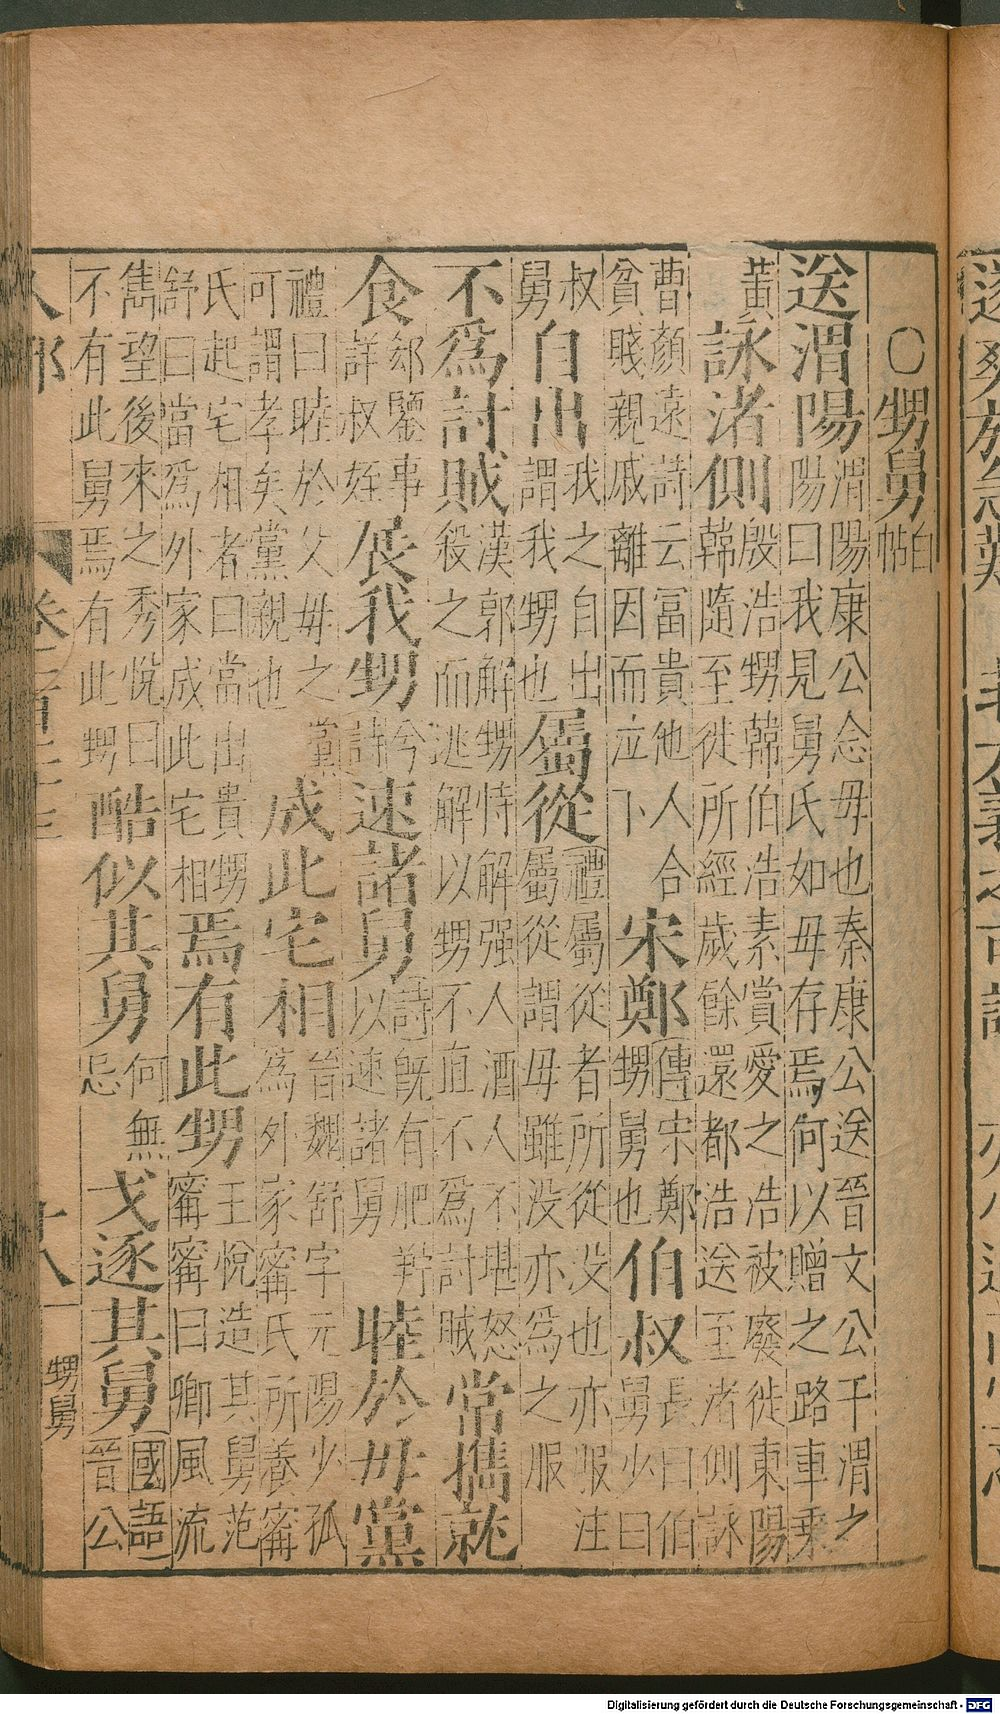 ○甥舅白帖
送渭陽渭陽康公念毋也秦康公送晉文公于渭之陽曰我見舅氏如毋存焉何以贈之路車乘
黃詠渚側殷浩甥韓伯浩素賞愛之浩被廢徙東陽韓隨至徙所經歲餘還都浩送至渚側詠
曹顏遠詩云冨貴他人合貧賤親戚離因而泣下宋鄭傳宋鄭甥舅也伯叔長曰伯舅少曰
叔舅自出我之自出謂我甥也屬從禮屬從者所從没也亦服注屬從謂毋雖没亦爲之服
不爲討賊漢郭解甥恃解强人酒人不堪怒殺之而逃解以甥不直不爲討賊常攜就
食郗鑒事詳叔姪展我甥兮詩速諸舅詩旣有肥羜以速諸舅睦於毋黨
禮曰睦於父毋之黨可謂孝矣黨親也成此宅相晉魏舒字元陽少孤爲外家甯氏所養甯
氏起宅相者曰當出貴甥舒曰當爲外家成此宅相焉有此甥王悅造其舅范甯甯曰卿風流
雋望後來之秀悅曰不有此舅焉有此甥酷似其舅何無忌戈逐其舅國語晉公
人部
卷二百四十三
十八
甥舅
Digitalisierung gefördert durch die Deutsche Forschungsgemeinschaft - DFG